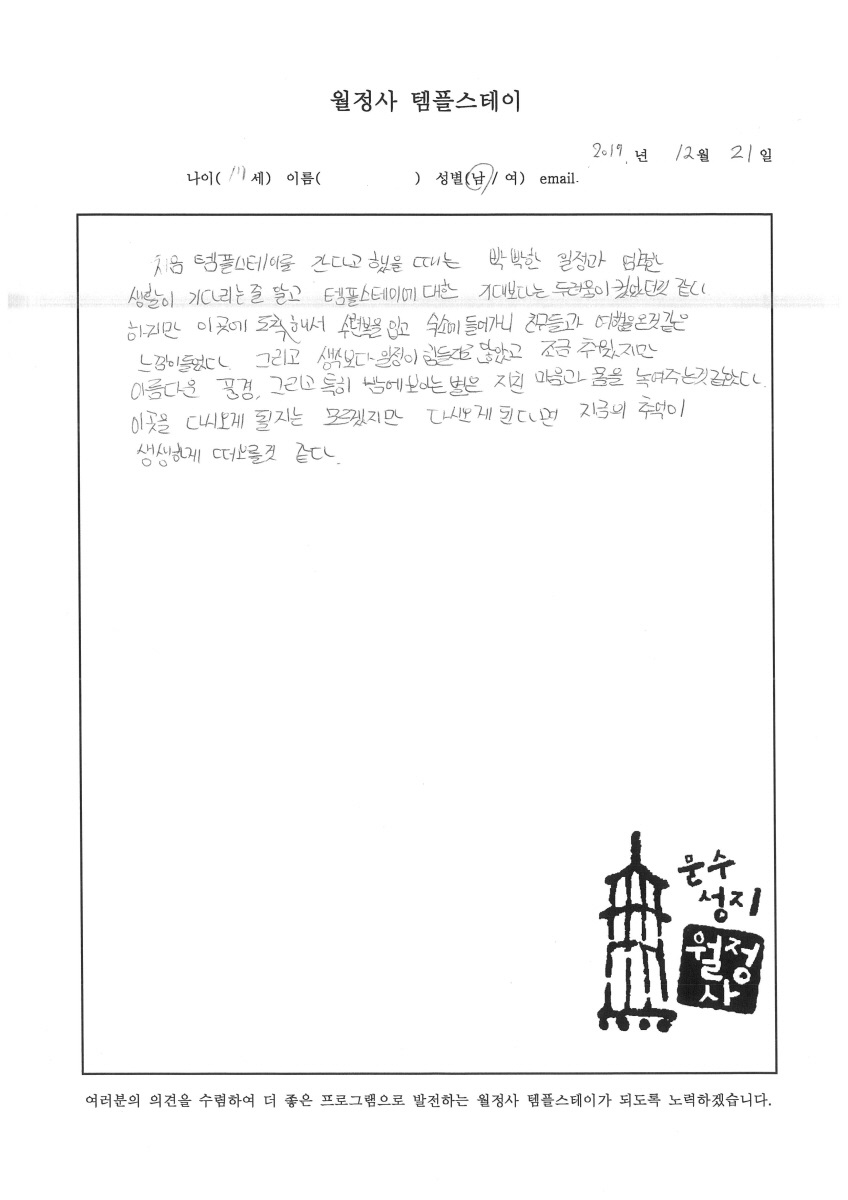 월정사 템플스테이
2019. 년 12월 21일
나이( 세) 이름( ) 성별(남/여) email.
처음 템플스테이를 간다고 했을 때는 빡빡한 일정과 엄한
생활이 기다리는줄 알고 템플스테이에 대한 기대보다는 두려움이 컸었던것 같다
하지만 이곳에 도착해서 수련복을 입고 숙소에 들어가니 친구들과 여행을온것같은
느낌이들었다. 그리고 생각보다 일정이 힘들지도 않았고 조금 추웠지만
아름다운 풍경, 그리고 특히 밤에보이는 별은 지친 마음과 몸을 녹여주는것같았다.
이곳을 다시오게 될지는 모르겠지만 다시오게 된다면 지금의 추억이
생생하게 떠오를것 같다.
문수
성지
월정
사
여러분의 의견을 수렴하여 더 좋은 프로그램으로 발전하는 월정사 템플스테이가 되도록 노력하겠습니다.